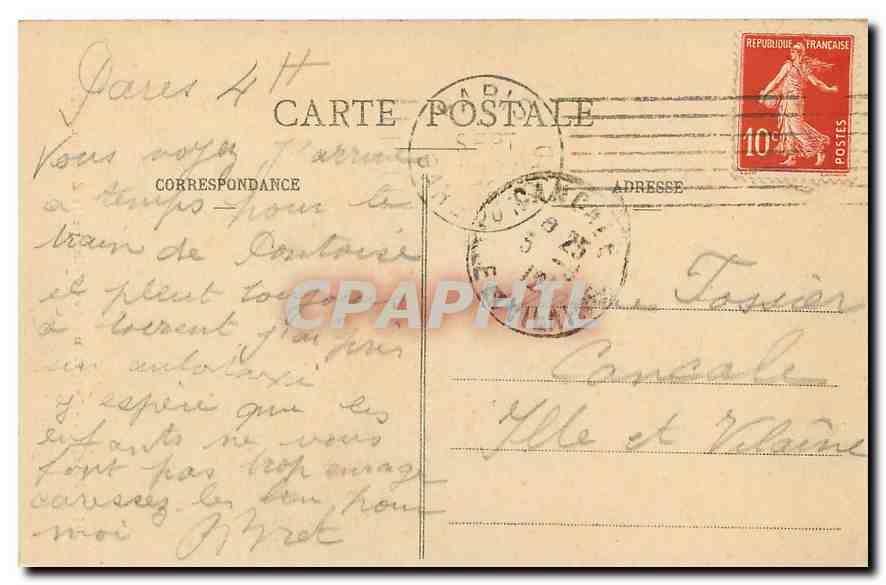 Paris 4H
CARTE POSTALE
CORRESPONDANCE
ADRESSE
REPUBLIQUE FRANÇAISE
10c
POSTES
PARIS
SEPT
CANCALE
8 25
ILLE
VILAINE
CPAPHIL
Vous voyez j'arrive
à temps pour le
train de Pontoise
il pleut toujours
à torrent j'ai pris
un autotaxi
J'espère que les
enfants ne vous
font pas trop enrager
caressez les bien pour
moi
Tossier
Cancale
Ille et Vilaine